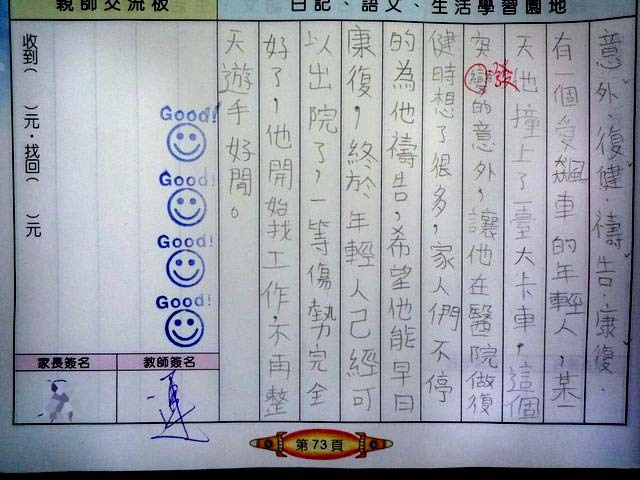 日記、語文、生活學習園地
意外、復健、禱告、康復
有一個愛飆車的年輕人，某一
天他撞上了一臺大卡車，這個
突變的意外，讓他在醫院做復
發
健時想了很多，家人們不停
的為他禱告，希望他能早日
康復，終於年輕人己經可
以出院了，一等傷勢完全
好了，他開始找工作，不再整
天遊手好閒。
親師交流板
Good!
Good!
Good!
Good!
收到(　)元．找回(　)元
教師簽名
家長簽名
第73頁